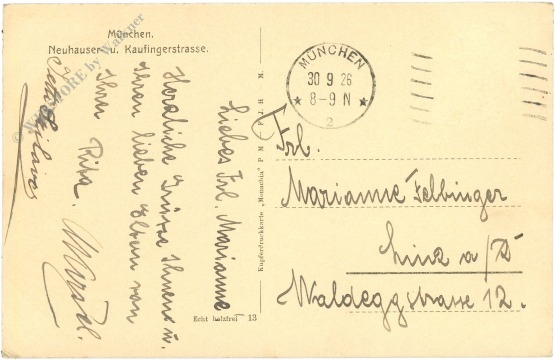 München.
Neuhauser- u. Kaufingerstrasse.
Liebes Frl. Marianne
Herzliche Grüsse Ihnen u.
Ihren lieben Eltern von
Ihrer Rika.
MÜNCHEN
30 9 26
★ 8-9 N ★
2
Kupferdruckkarte „Monachia“ P M F J H M.
Echt holzfrei 13
Frl.
Marianne Felbinger
Linz a/D
Waldeggstrasse 12.
© WISTORE by Wallner